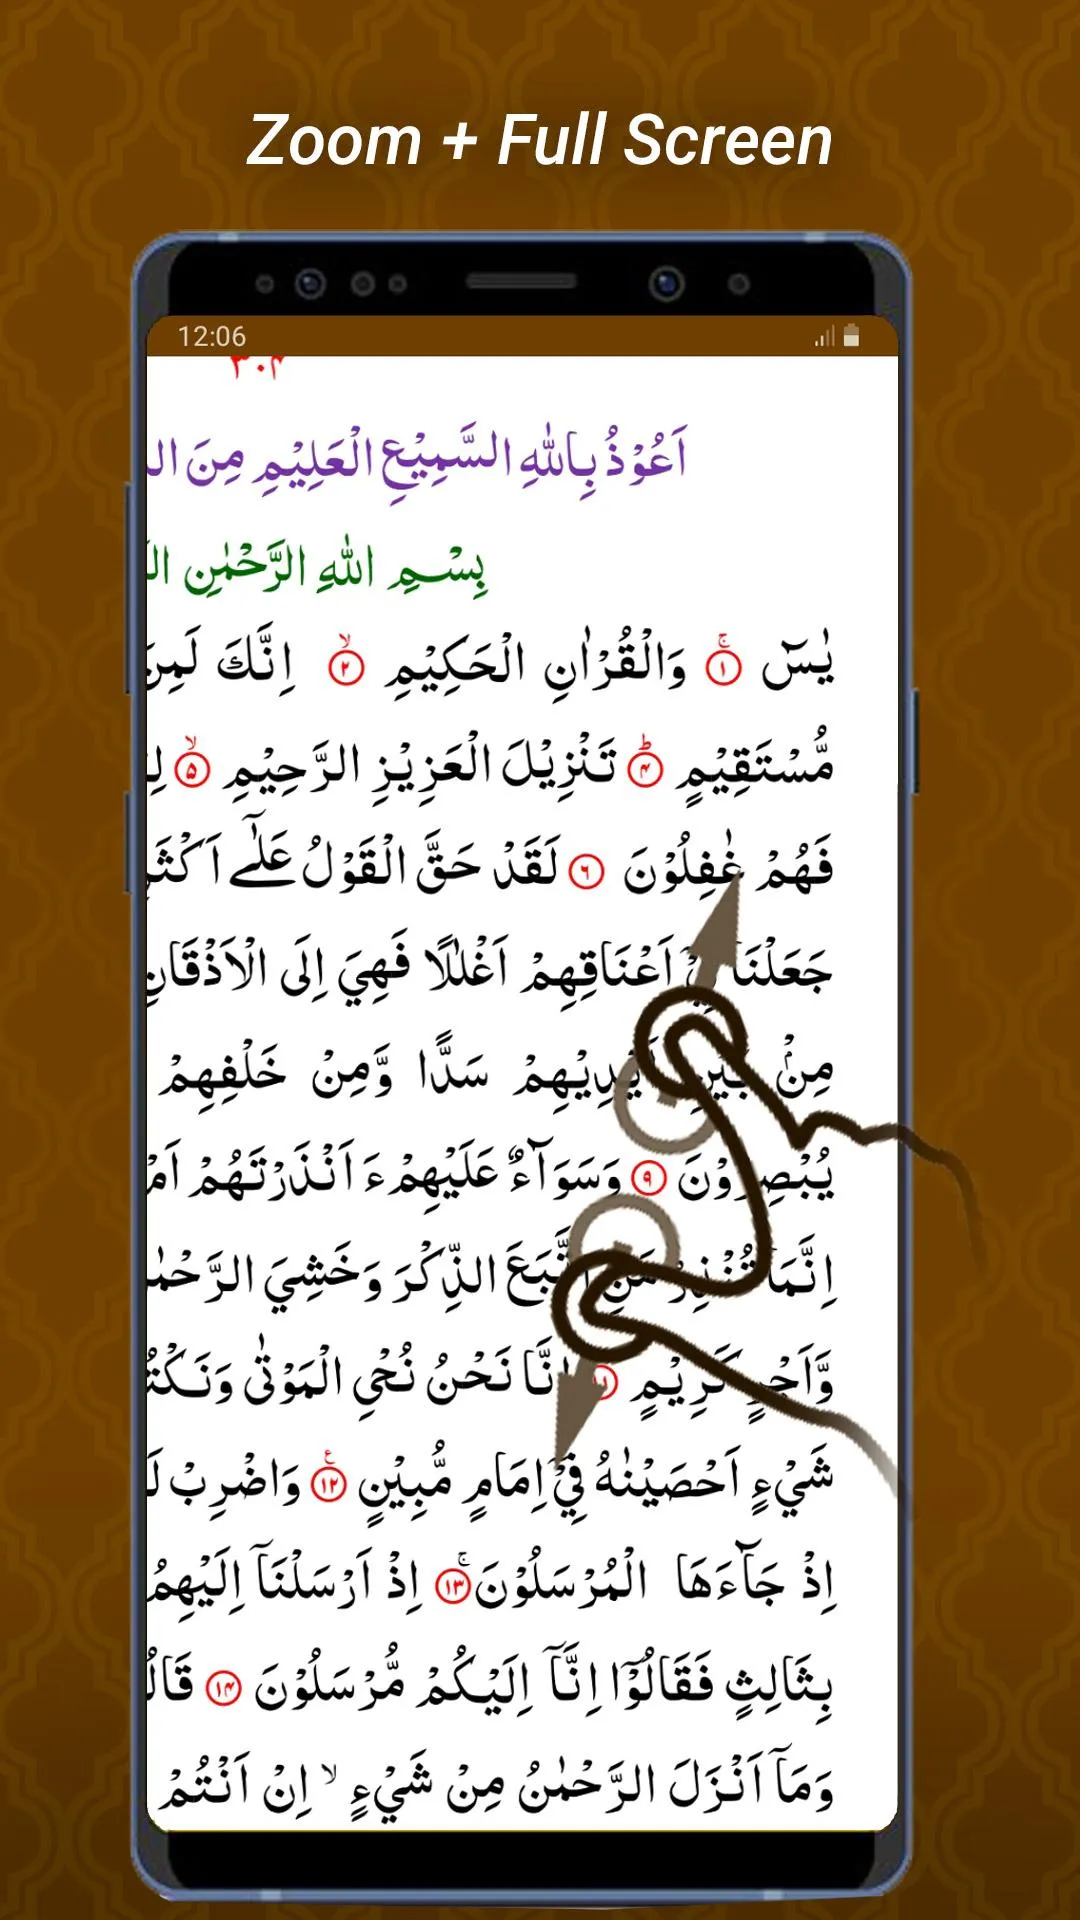 Zoom + Full Screen
12:06
۳۰۴
اَعُوْذُ بِاللهِ السَّمِيْعِ الْعَلِيْمِ مِنَ
بِسْمِ اللهِ الرَّحْمٰنِ
يٰسٓ ۚ ۱ وَالْقُرْاٰنِ الْحَكِيْمِ ۙ ۲ اِنَّكَ لَمِنَ
مُّسْتَقِيْمٍ ؕ ۴ تَنْزِيْلَ الْعَزِيْزِ الرَّحِيْمِ ۙ ۵
فَهُمْ غٰفِلُوْنَ ۶ لَقَدْ حَقَّ الْقَوْلُ عَلٰٓے
جَعَلْنَا فِيْۤ اَعْنَاقِهِمْ اَغْلٰلًا فَهِيَ اِلَى الْاَذْقَانِ
مِنْۢ بَيْنِ اَيْدِيْهِمْ سَدًّا وَّمِنْ خَلْفِهِمْ
يُبْصِرُوْنَ ۹ وَسَوَآءٌ عَلَيْهِمْ ءَاَنْذَرْتَهُمْ اَمْ
اِنَّمَا تُنْذِرُ مَنِ اتَّبَعَ الذِّكْرَ وَخَشِيَ
وَّاَجْرٍ كَرِيْمٍ ۱۱ اِنَّا نَحْنُ نُحْيِ الْمَوْتٰى
شَيْءٍ اَحْصَيْنٰهُ فِيْۤ اِمَامٍ مُّبِيْنٍ ۱۲ ۧ وَاضْرِبْ
اِذْ جَآءَهَا الْمُرْسَلُوْنَ ۚ ۱۳ اِذْ اَرْسَلْنَاۤ اِلَيْهِمُ
بِثَالِثٍ فَقَالُوْۤا اِنَّاۤ اِلَيْكُمْ مُّرْسَلُوْنَ ۱۴
وَمَاۤ اَنْزَلَ الرَّحْمٰنُ مِنْ شَيْءٍ ۙ اِنْ اَنْتُمْ